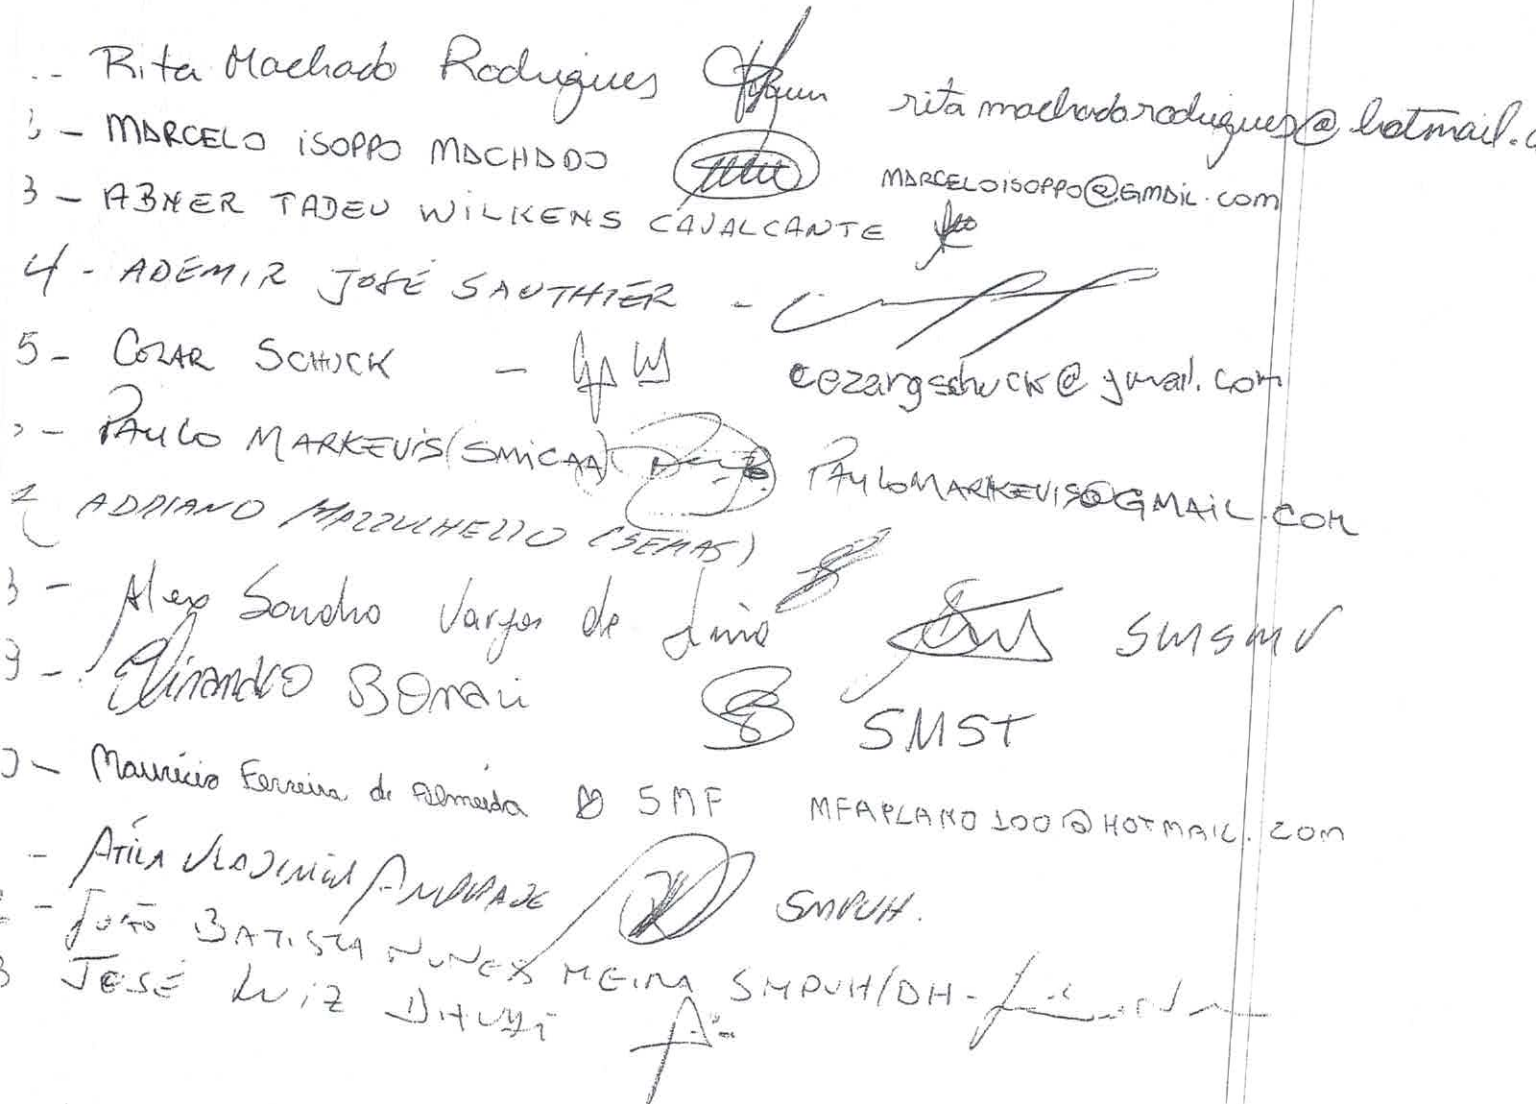 Rita Machado Rodrigues ritamachadorodrigues@hotmail.c
- MARCELO ISOPPO MACHADO MARCELOISOPPO@GMAIL.COM
3 - ABNER TADEU WILKENS CAVALCANTE
4 - ADEMIR JOSÉ SAUTHIER -
5 - CEZAR SCHUCK - cezargschuck@gmail.com
- PAULO MARKEVIS (SMICAA) PAULOMARKEVIS@GMAIL.COM
ADRIANO (SEMAS)
- Alex Sandro Vargas de Lima SMSMU
- SMST
- Maurício Ferreira de Almeida SMF MFAPLANO100@HOTMAIL.COM
- ÁTILA VLADIMIR ANDRADE SMPUH.
- JOÃO BATISTA NUNES MEIRA SMPUH/DH -
JOSÉ LUIZ